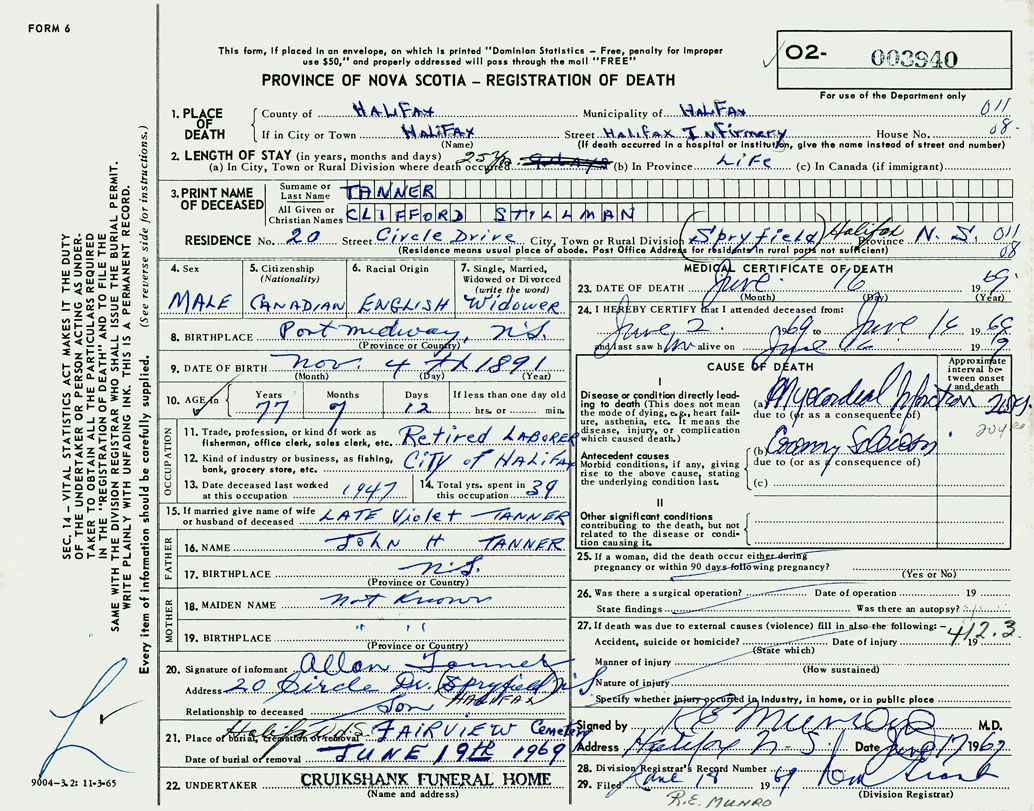 FORM 6
This form, if placed in an envelope, on which is printed "Dominion Statistics – Free, penalty for improper
use $50," and properly addressed will pass through the mail "FREE"
PROVINCE OF NOVA SCOTIA – REGISTRATION OF DEATH
O2- 003940
For use of the Department only
1. PLACE OF DEATH
County of HALIFAX Municipality of HALIFAX 011
If in City or Town HALIFAX Street HALIFAX INFIRMERY House No. 08
(Name) (If death occurred in a hospital or institution, give the name instead of street and number)
2. LENGTH OF STAY (in years, months and days)
(a) In City, Town or Rural Division where death occurred 25 (b) In Province LIFE (c) In Canada (if immigrant)
3. PRINT NAME OF DECEASED
Surname or Last Name TANNER
All Given or Christian Names CLIFFORD STILLMAN
RESIDENCE No. 20 Street Circle Drive City, Town or Rural Division (Spryfield) Halifax Province N. S. 011
(Residence means usual place of abode. Post Office Address for residents in rural parts not sufficient) 08
4. Sex MALE
5. Citizenship (Nationality) CANADIAN
6. Racial Origin ENGLISH
7. Single, Married, Widowed or Divorced (write the word) Widower
8. BIRTHPLACE Port Midway, N.S.
(Province or Country)
9. DATE OF BIRTH Nov. 4 TH 1891
(Month) (Day) (Year)
10. AGE in Years 77 Months 7 Days 12 If less than one day old hrs. or min.
OCCUPATION
11. Trade, profession, or kind of work as fisherman, office clerk, sales clerk, etc. Retired LABORER
12. Kind of industry or business, as fishing, bank, grocery store, etc. CITY of HALIFAX
13. Date deceased last worked at this occupation 1947
14. Total yrs. spent in this occupation 39
15. If married give name of wife or husband of deceased LATE Violet TANNER
FATHER
16. NAME JOHN H TANNER
17. BIRTHPLACE N.S.
(Province or Country)
MOTHER
18. MAIDEN NAME Not Known
19. BIRTHPLACE " " "
(Province or Country)
20. Signature of informant Allan Tanner
Address 20 Circle Dr. (Spryfield) N.S
HALIFAX
Relationship to deceased Son
21. Place of burial, cremation or removal Halifax N.S FAIRVIEW Cemetery
Date of burial or removal JUNE 19th 1969
22. UNDERTAKER CRUIKSHANK FUNERAL HOME
(Name and address)
MEDICAL CERTIFICATE OF DEATH
23. DATE OF DEATH June 16 1969
(Month) (Day) (Year)
24. I HEREBY CERTIFY that I attended deceased from:
June 2 1969 to June 16 1969
and last saw him alive on June 16 19
CAUSE OF DEATH
Approximate interval between onset and death
I
Disease or condition directly leading to death (This does not mean the mode of dying, e.g., heart failure, asthenia, etc. It means the disease, injury, or complication which caused death.)
(a) Myocardial Infarction
due to (or as a consequence of)
Antecedent causes
Morbid conditions, if any, giving rise to the above cause, stating the underlying condition last.
(b)
due to (or as a consequence of)
(c)
II
Other significant conditions contributing to the death, but not related to the disease or condition causing it.
25. If a woman, did the death occur either during pregnancy or within 90 days following pregnancy?
(Yes or No)
26. Was there a surgical operation? Date of operation 19
State findings Was there an autopsy?
27. If death was due to external causes (violence) fill in also the following:– 412.3
Accident, suicide or homicide? Date of injury 19
(State which)
Manner of injury
(How sustained)
Nature of injury
Specify whether injury occurred in industry, in home, or in public place
Signed by R E Munro M.D.
Address Halifax N-S. Date June 17 1969
28. Division Registrar's Record Number
29. Filed June 18 1969
(Division Registrar)
R.E. MUNRO
SEC. 14 – VITAL STATISTICS ACT MAKES IT THE DUTY
OF THE UNDERTAKER OR PERSON ACTING AS UNDER-
TAKER TO OBTAIN ALL THE PARTICULARS REQUIRED
IN THE "REGISTRATION OF DEATH" AND TO FILE THE
SAME WITH THE DIVISION REGISTRAR WHO SHALL ISSUE THE BURIAL PERMIT.
WRITE PLAINLY WITH UNFADING INK. THIS IS A PERMANENT RECORD.
Every item of information should be carefully supplied. (See reverse side for instructions.)
9004-3.2: 11-3-65